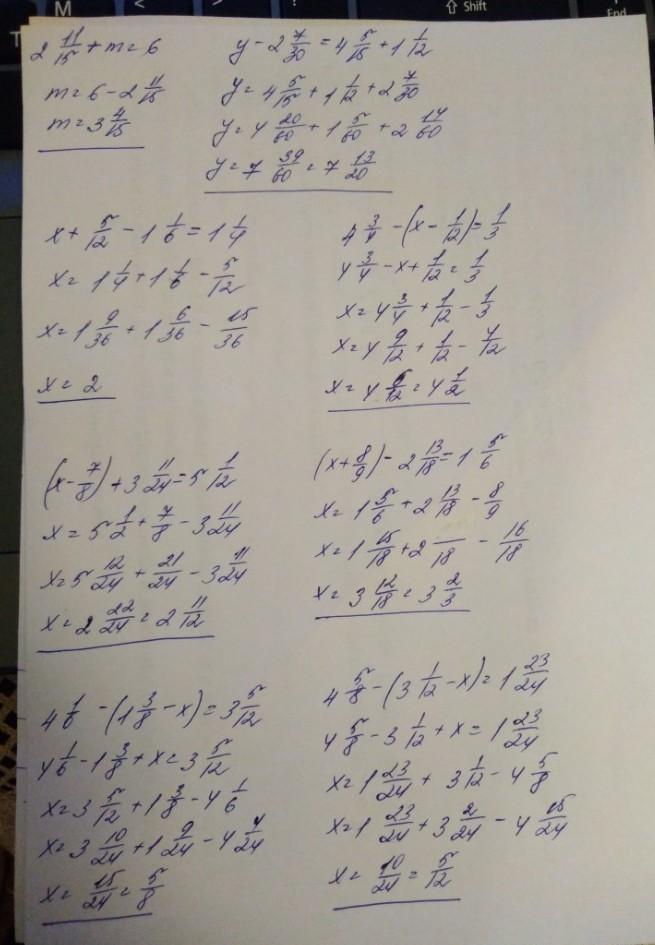 M < > ⇧ Shift 5 End 1
2 11/15 + m = 6
m = 6 - 2 11/15
m = 3 4/15
y - 2 7/30 = 4 5/15 + 1 1/12
y = 4 5/15 + 1 1/12 + 2 7/30
y = 4 20/60 + 1 5/60 + 2 14/60
y = 7 39/60 = 7 13/20
x + 5/12 - 1 1/6 = 1 1/4
x = 1 1/4 + 1 1/6 - 5/12
x = 1 9/36 + 1 6/36 - 15/36
x = 2
4 3/4 - (x - 1/12) = 1/3
4 3/4 - x + 1/12 = 1/3
x = 4 3/4 + 1/12 - 1/3
x = 4 9/12 + 1/12 - 4/12
x = 4 6/12 = 4 1/2
(x - 7/8) + 3 11/24 = 5 1/12
x = 5 1/2 + 7/8 - 3 11/24
x = 5 12/24 + 21/24 - 3 11/24
x = 2 22/24 = 2 11/12
(x + 8/9) - 2 13/18 = 1 5/6
x = 1 5/6 + 2 13/18 - 8/9
x = 1 15/18 + 2 /18 - 16/18
x = 3 12/18 = 3 2/3
4 1/6 - (1 3/8 - x) = 3 5/12
4 1/6 - 1 3/8 + x = 3 5/12
x = 3 5/12 + 1 3/8 - 4 1/6
x = 3 10/24 + 1 9/24 - 4 4/24
x = 15/24 = 5/8
4 5/8 - (3 1/12 - x) = 1 23/24
4 5/8 - 3 1/12 + x = 1 23/24
x = 1 23/24 + 3 1/12 - 4 5/8
x = 1 23/24 + 3 2/24 - 4 15/24
x = 10/24 = 5/12